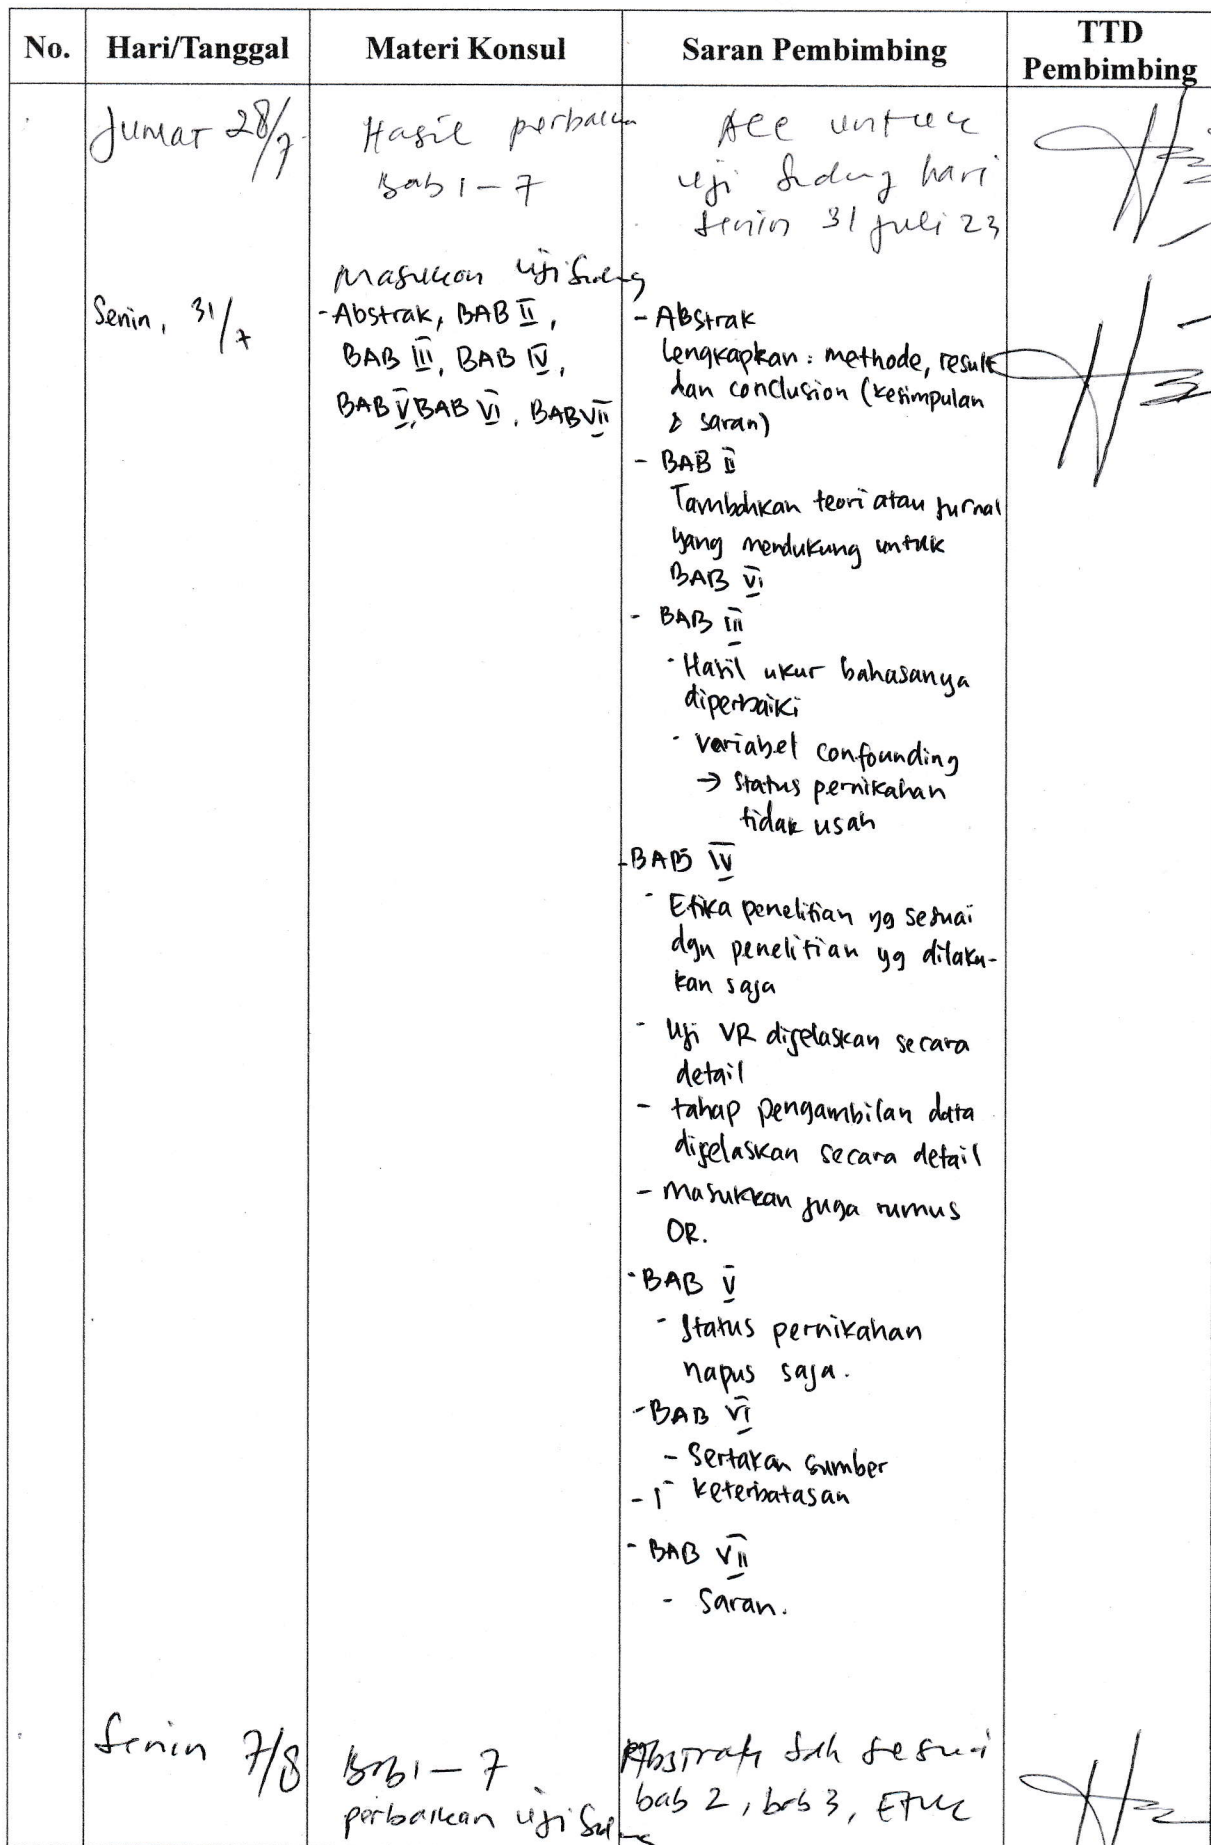 No. Hari/Tanggal Materi Konsul Saran Pembimbing TTD Pembimbing
Jumat 28/7
Hasil perbaikan
Bab 1 - 7
Acc untuk
uji Sidang hari
Senin 31 Juli 23
Masukan uji Sidang
Senin, 31/7
- Abstrak, BAB II,
BAB III, BAB IV,
BAB V, BAB VI, BAB VII
- Abstrak
Lengkapkan : methode, result
dan conclusion (kesimpulan
& saran)
- BAB II
Tambahkan teori atau jurnal
yang mendukung untuk
BAB VI
- BAB III
- Hasil ukur bahasanya
diperbaiki
- Variabel confounding
→ Status pernikahan
tidak usah
- BAB IV
- Etika penelitian yg sesuai
dgn penelitian yg dilaku-
kan saja
- Uji VR dijelaskan secara
detail
- tahap pengambilan data
dijelaskan secara detail
- Masukkan juga rumus
OR.
- BAB V
- Status pernikahan
hapus saja.
- BAB VI
- Sertakan sumber
- keterbatasan
- BAB VII
- Saran.
Senin 7/8
Bab 1 - 7
perbaikan uji Sidang
Abstrak Sdh sesuai
bab 2, bab 3, Etik